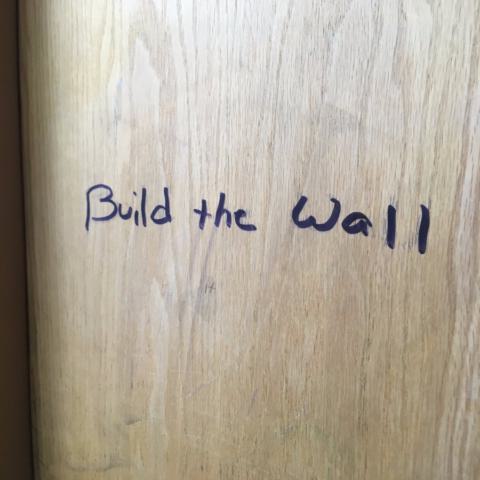 Build the Wall